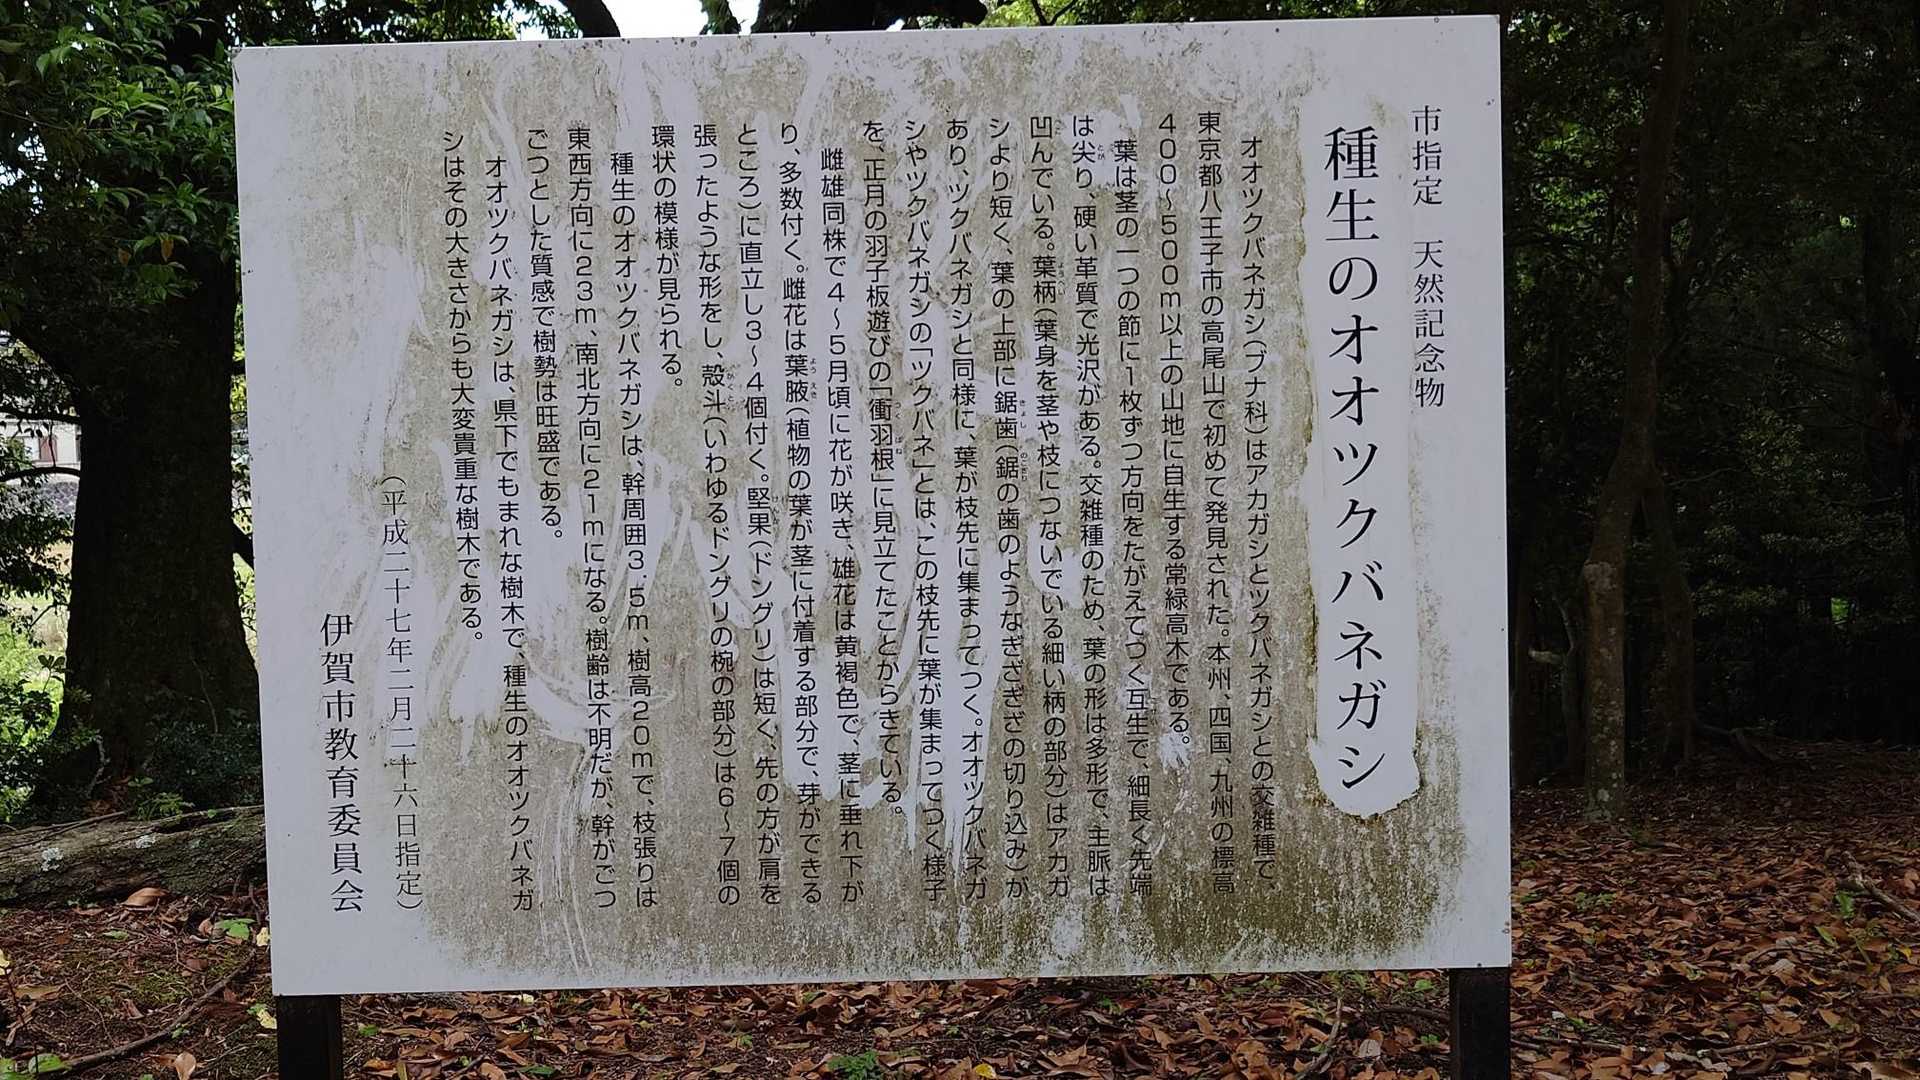 市指定　天然記念物
種生のオオツクバネガシ
オオツクバネガシ（ブナ科）はアカガシとツクバネガシとの交雑種で、
東京都八王子市の高尾山で初めて発見された。本州、四国、九州の標高
４００～５００ｍ以上の山地に自生する常緑高木である。
葉は茎の一つの節に１枚ずつ方向をたがえてつく互生で、細長く先端
は尖り、硬い革質で光沢がある。交雑種のため、葉の形は多形で、主脈は
凹んでいる。葉柄（葉身を茎や枝につないでいる細い柄の部分）はアカガ
シより短く、葉の上部に鋸歯（鋸の歯のようなぎざぎざの切り込み）が
あり、ツクバネガシと同様に、葉が枝先に集まってつく。オオツクバネガ
シやツクバネガシの「ツクバネ」とは、この枝先に葉が集まってつく様子
を、正月の羽子板遊びの「衝羽根」に見立てたことからきている。
雌雄同株で４～５月頃に花が咲き、雄花は黄褐色で、茎に垂れ下が
り、多数付く。雌花は葉腋（植物の葉が茎に付着する部分で、芽ができる
ところ）に直立し３～４個付く。堅果（ドングリ）は短く、先の方が肩を
張ったような形をし、殻斗（いわゆるドングリの椀の部分）は６～７個の
環状の模様が見られる。
種生のオオツクバネガシは、幹周囲３．５ｍ、樹高２０ｍで、枝張りは
東西方向に２３ｍ、南北方向に２１ｍになる。樹齢は不明だが、幹がごつ
ごつとした質感で樹勢は旺盛である。
オオツクバネガシは、県下でもまれな樹木で、種生のオオツクバネガ
シはその大きさからも大変貴重な樹木である。
（平成二十七年二月二十六日指定）
伊賀市教育委員会